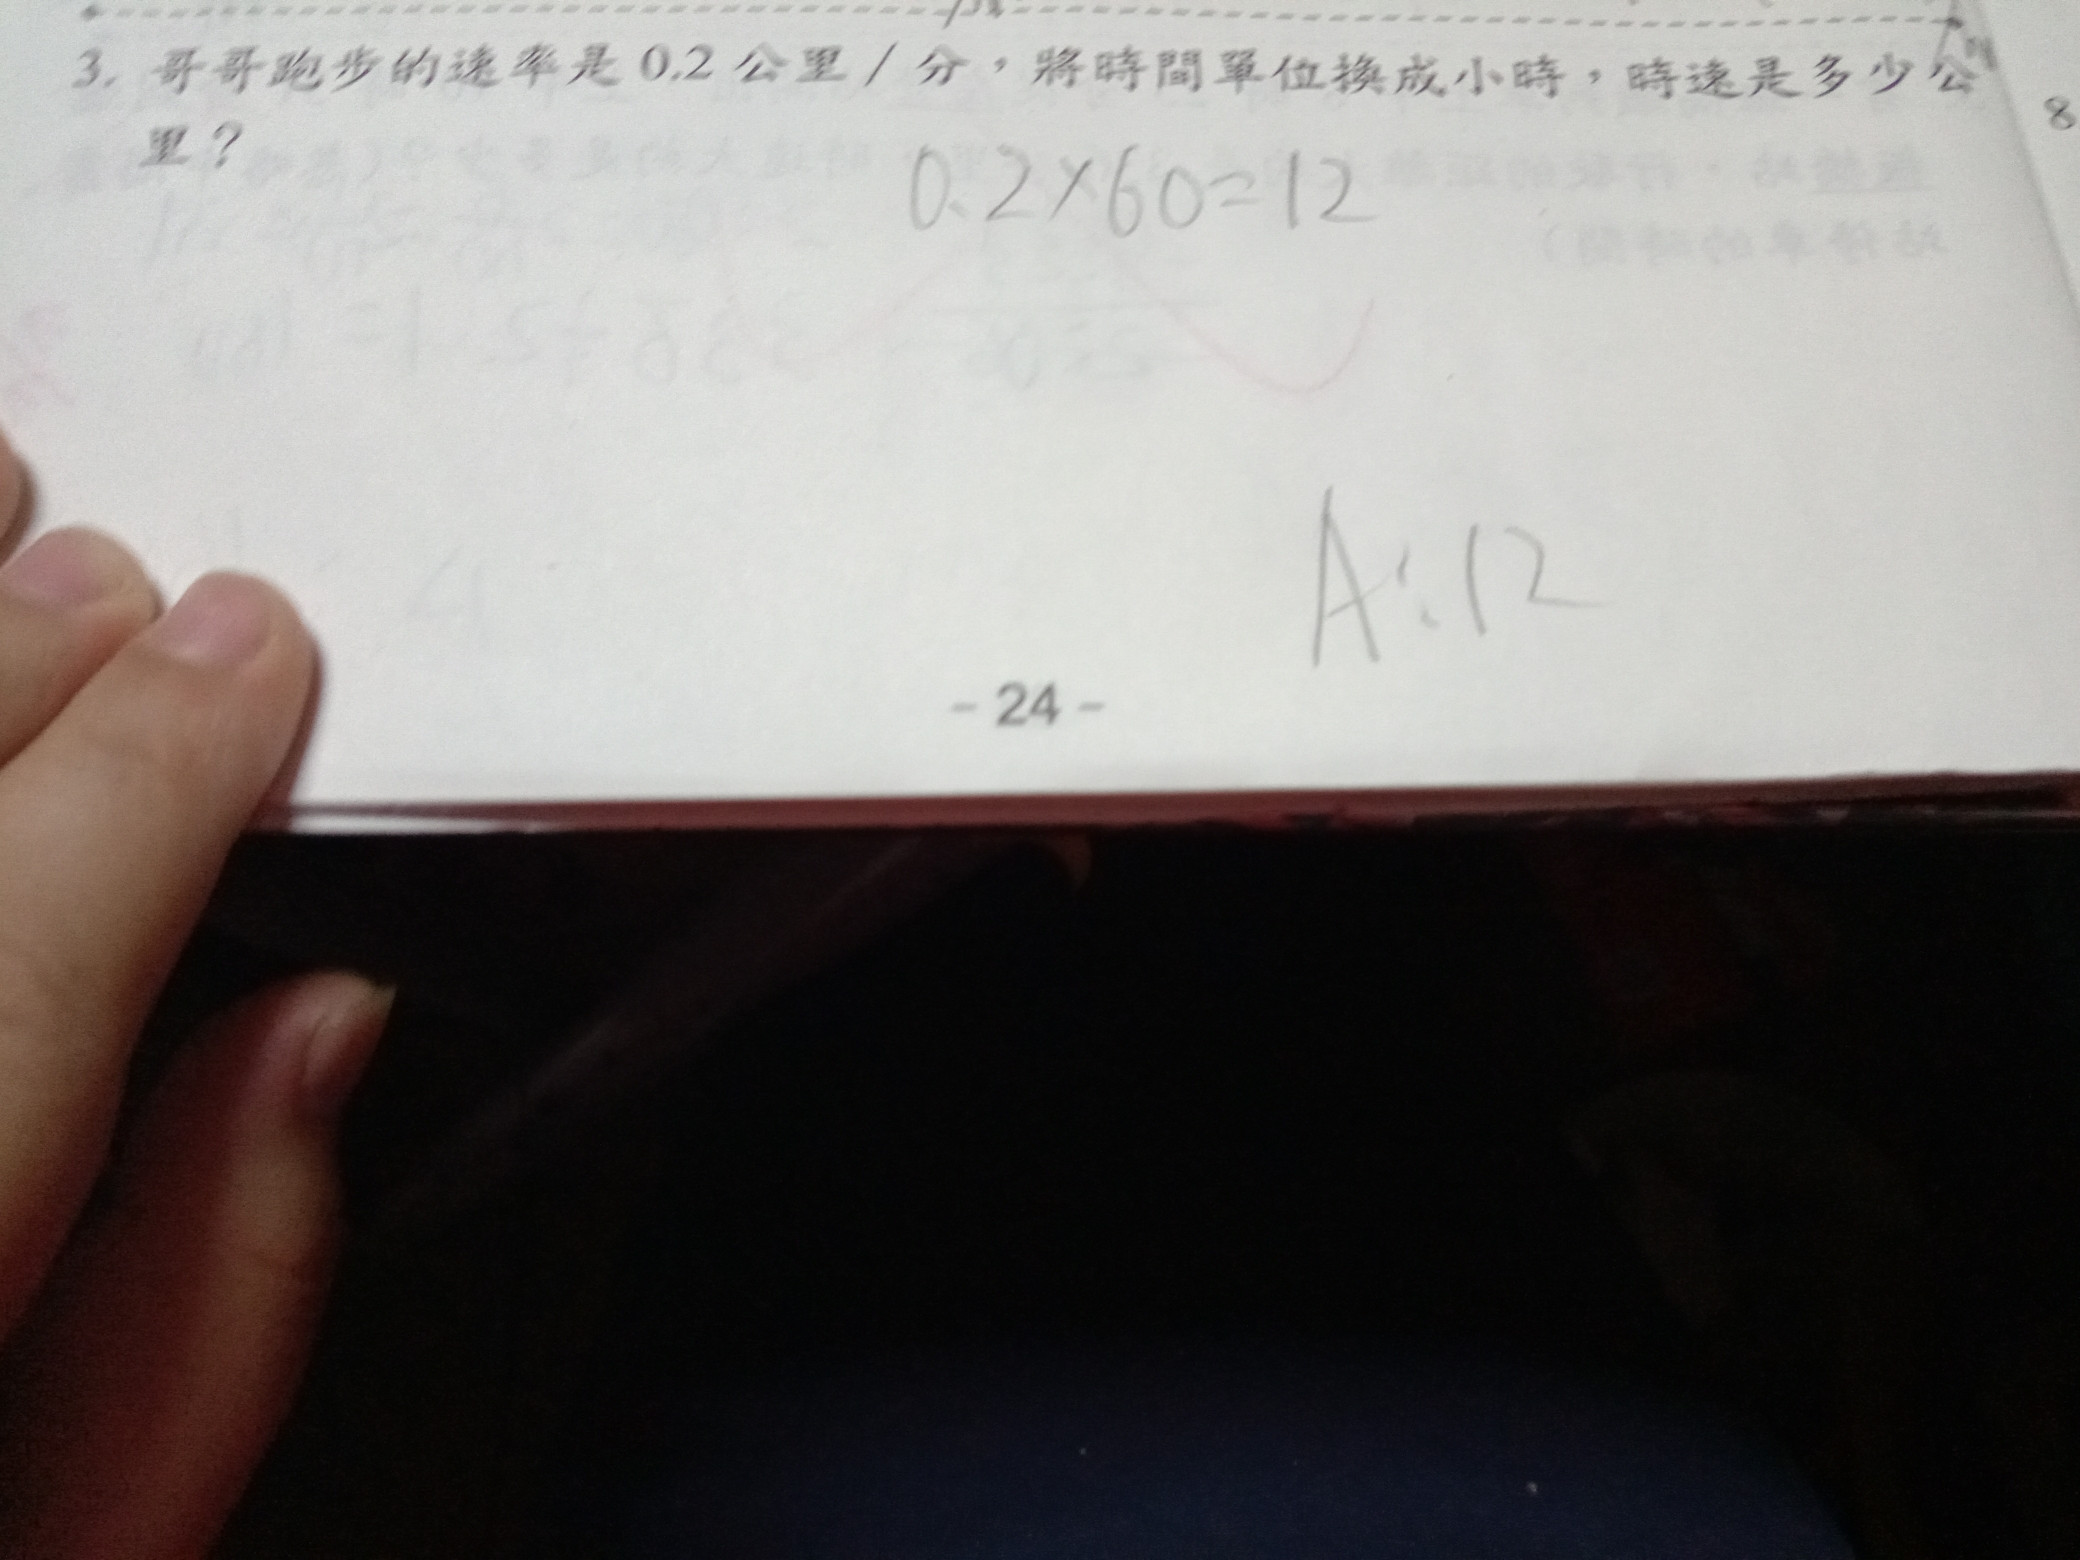 3. 哥哥跑步的速率是 0.2 公里 / 分，將時間單位換成小時，時速是多少公
里？
0.2×60=12
A:12
- 24 -
8